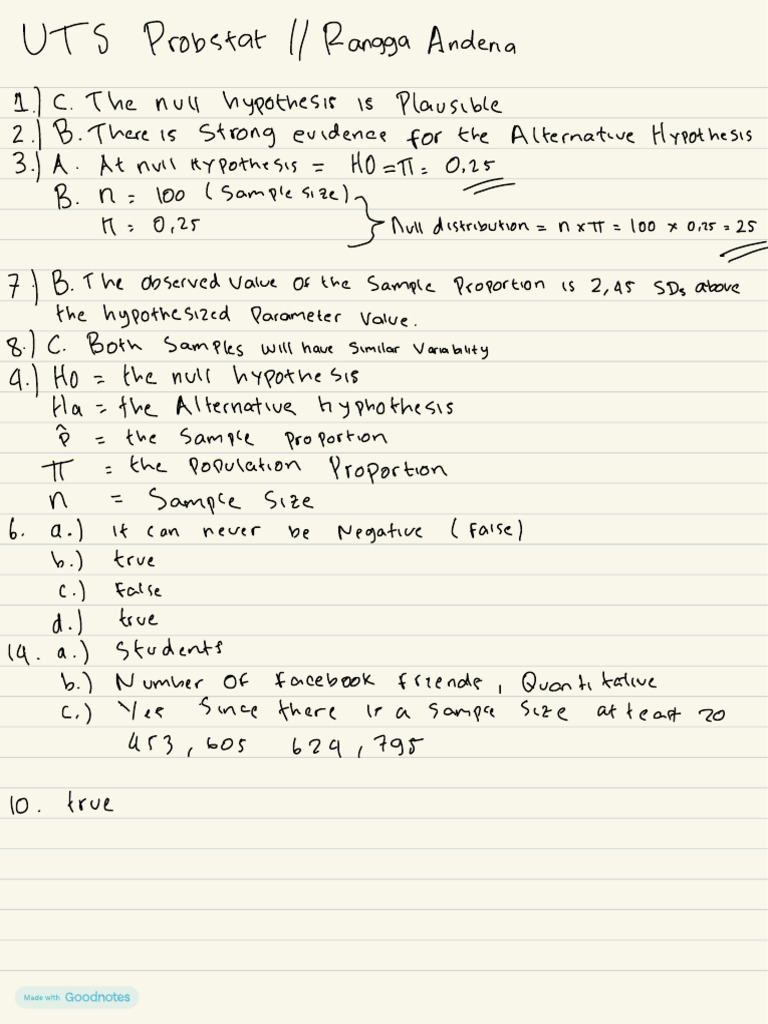 UTS Probstat // Rangga Andena
1.) C. The null hypothesis is Plausible
2.) B. There is Strong evidence for the Alternative Hypothesis
3.) A. At null Hypothesis = H0 = π = 0,25
B. n = 100 (Sample size)
π = 0,25
Null distribution = n x π = 100 x 0,25 = 25
7) B. The observed value of the Sample Proportion is 2,45 SDs above
the hypothesized Parameter value.
8.) C. Both Samples will have Similar Variability
9.) H0 = the null hypothesis
Ha = the Alternative hyphothesis
p̂ = the Sample proportion
π = the Population Proportion
n = Sample Size
6. a.) it can never be Negative (False)
b.) true
c.) False
d.) true
14. a.) Students
b.) Number of facebook friends, Quantitative
c.) Yes Since there is a Sample Size at least 20
453, 605 629, 795
10. true
Made with Goodnotes